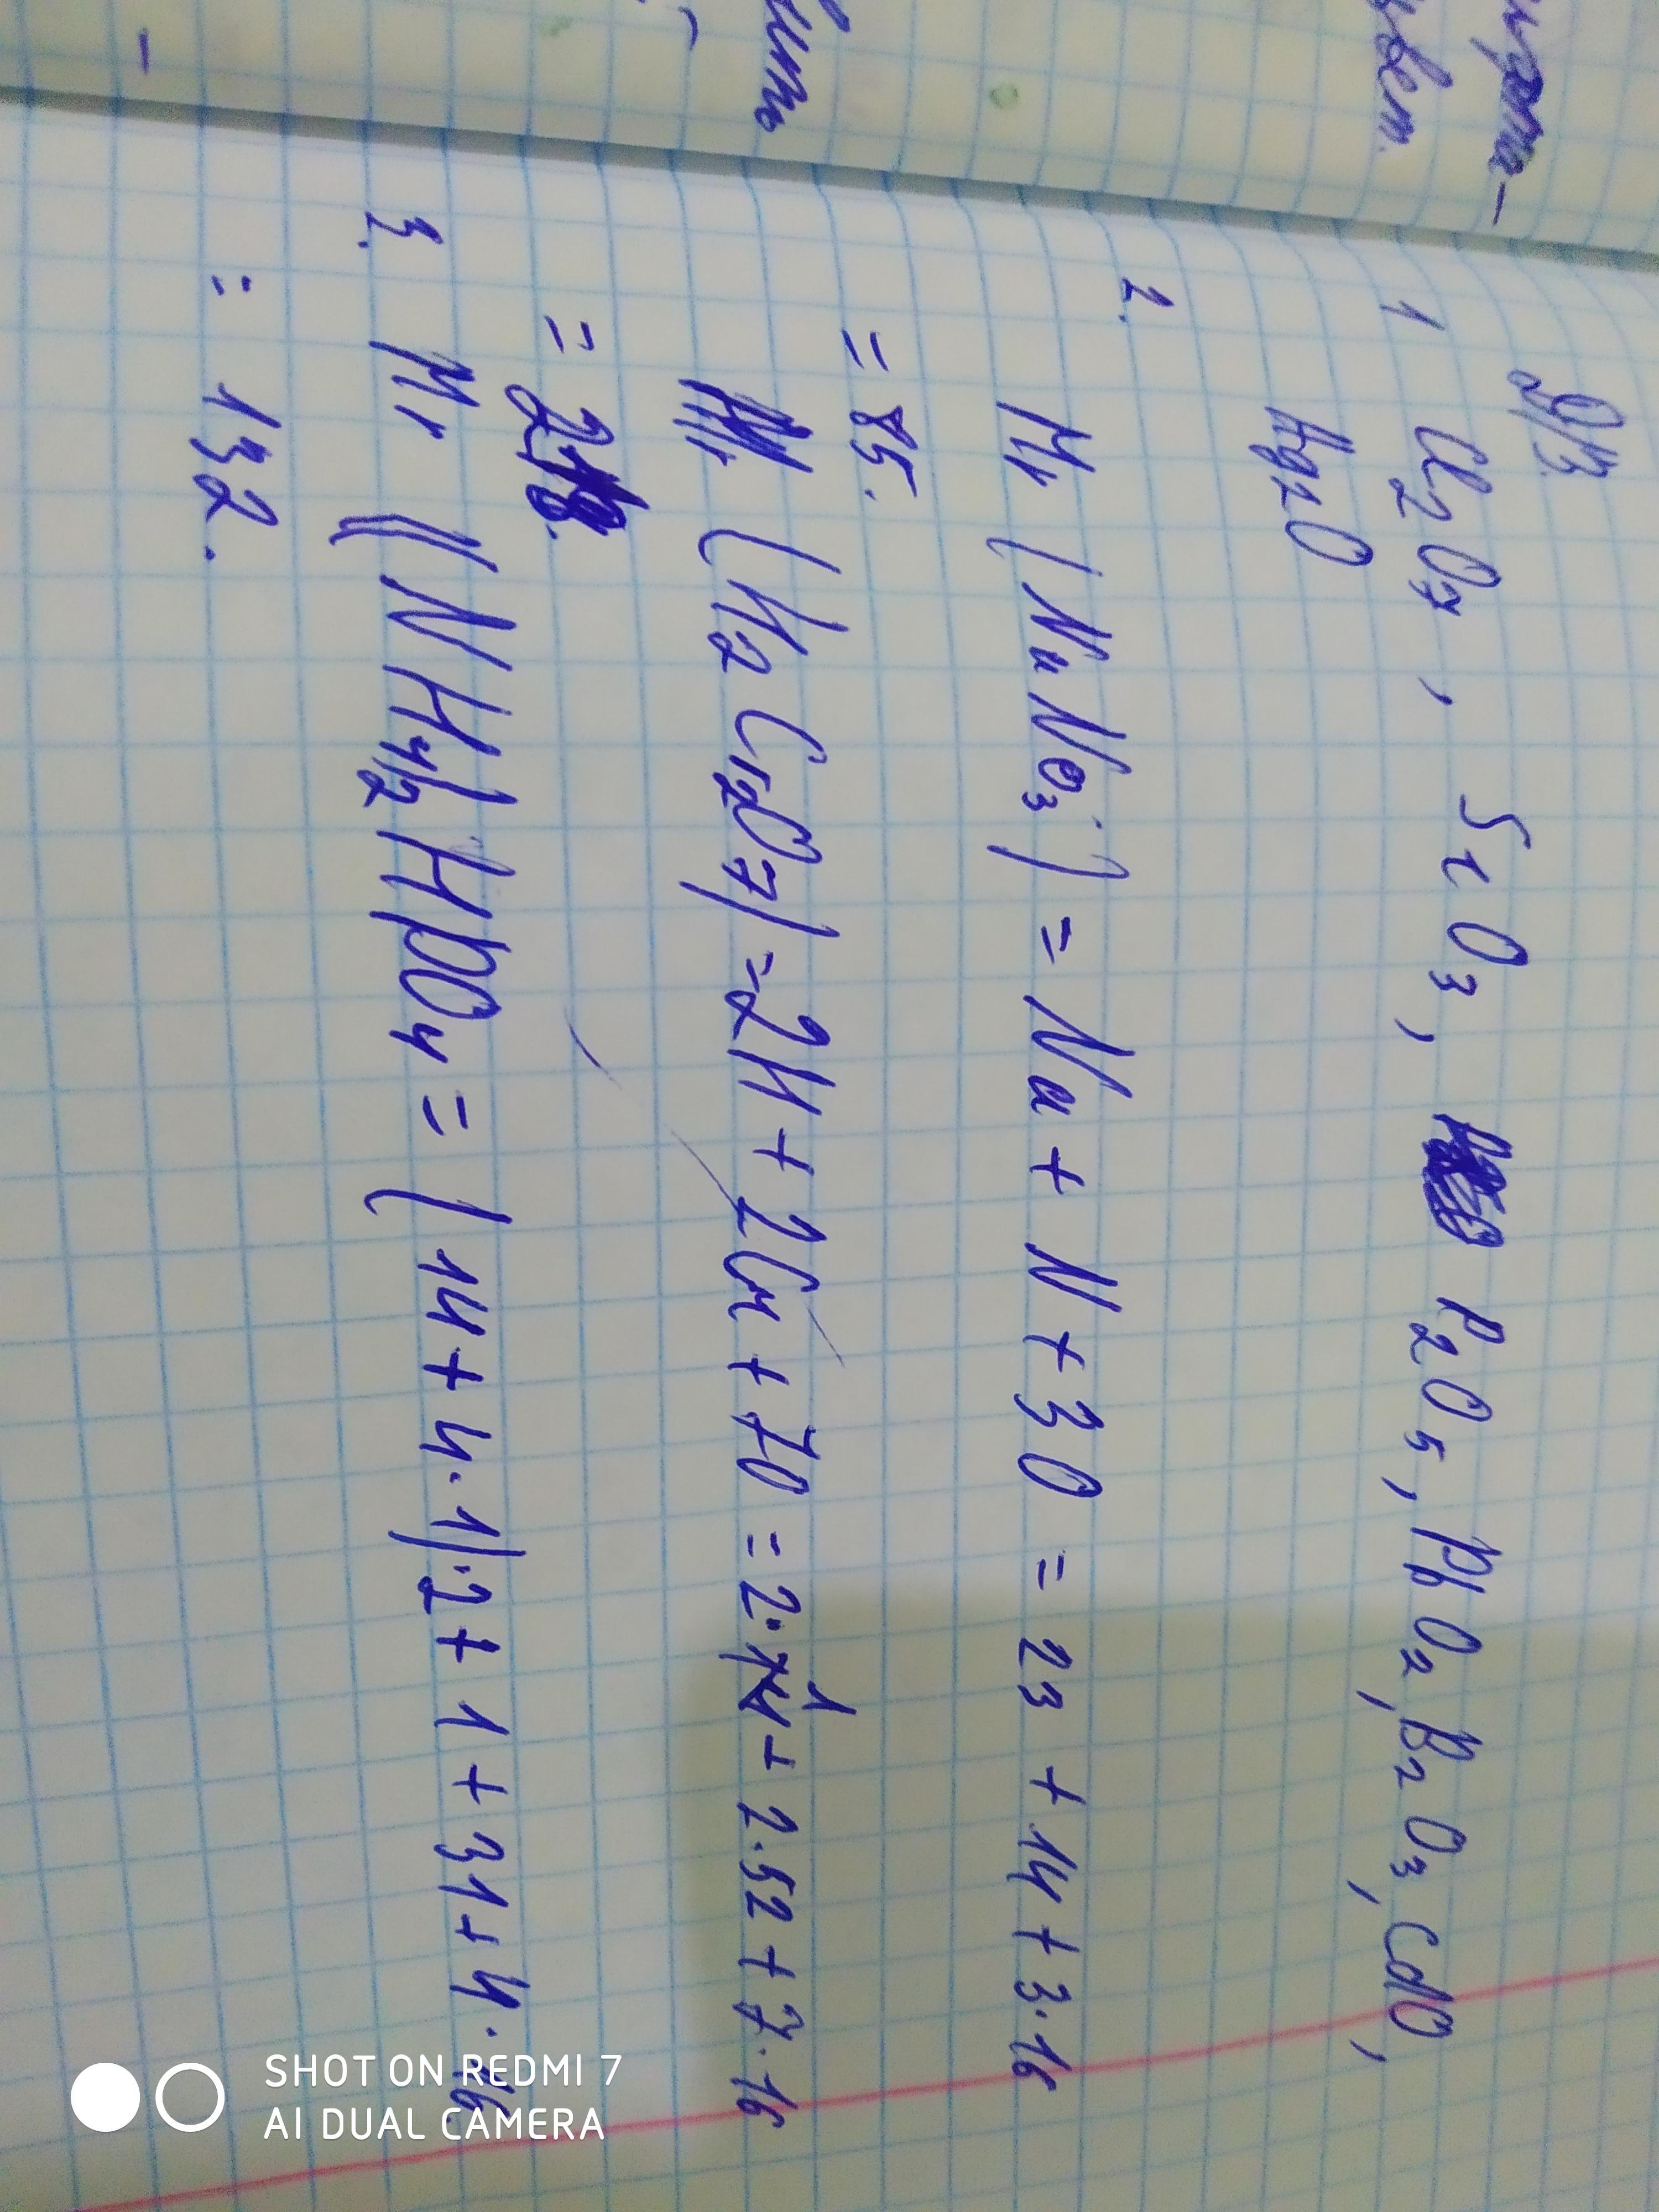 Д/з.
1 Cl2O7, SeO3, P2O5, PbO2, B2O3, CdO,
Ag2O
2.
Mr (NaNO3) = Na + N + 3O = 23 + 14 + 3·16
= 85.
Mr (H2Cr2O7) = 2H + 2Cr + 7O = 2·1 + 2·52 + 7·16
= 218.
3. Mr ((NH4)2HPO4 = (14 + 4·1)·2 + 1 + 31 + 4·16
= 132.
SHOT ON REDMI 7
AI DUAL CAMERA